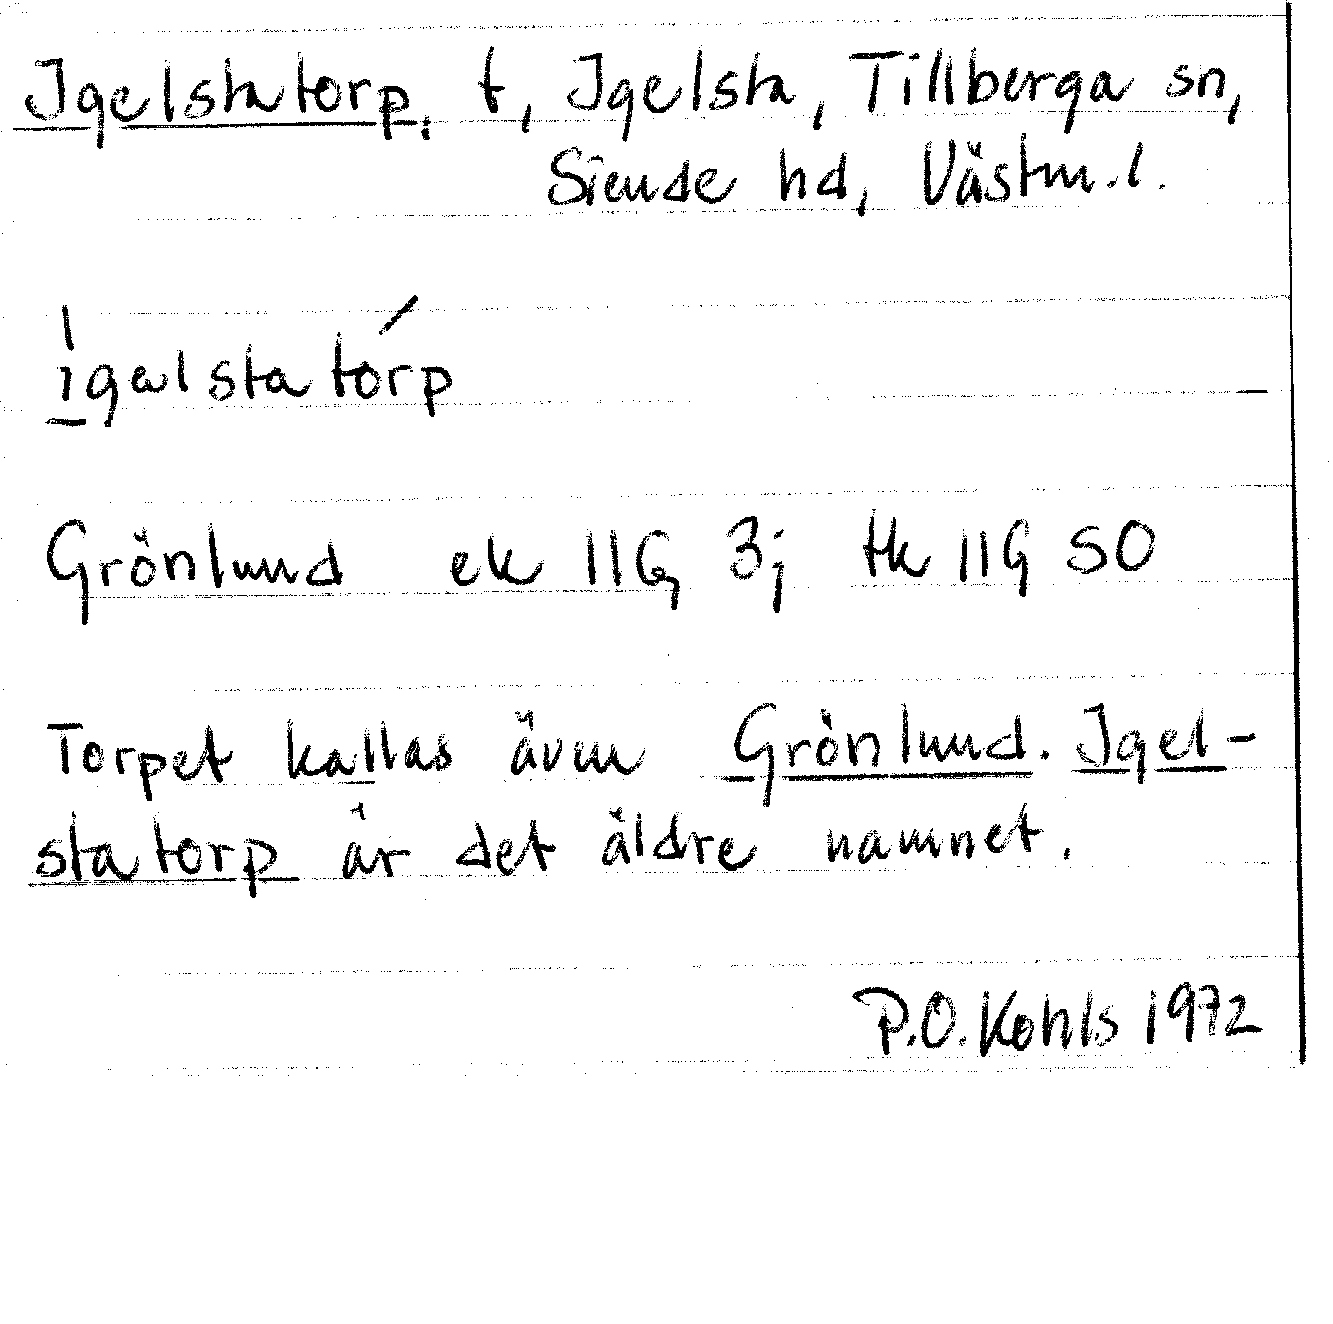 Igelstatorp, t, Igelsta, Tillberga sn,
Siende hd, Västm.l.
ìgəlstatórp
Grönlund ek 11G, 3; tk 11G SO
Torpet kallas även Grönlund. Igel-
statorp är det äldre namnet.
P.O. Kohls 1972